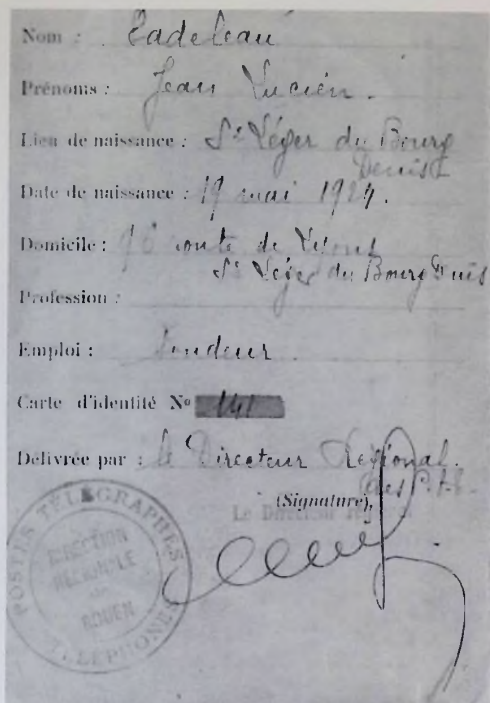 Nom : Cadeleau
Prénoms : Jean Lucien.
Lieu de naissance : St Léger du Bourg
Denis
Date de naissance : 19 mai 1924.
Domicile : 96 route de
St Léger du Bourg Denis
Profession :
Emploi : Soudeur
Carte d'identité No 141
Délivrée par : le Directeur Régional.
des P.T.T.
(Signature),
Le Directeur
POSTES TÉLÉGRAPHES TÉLÉPHONES
DIRECTION
RÉGIONALE
de
ROUEN